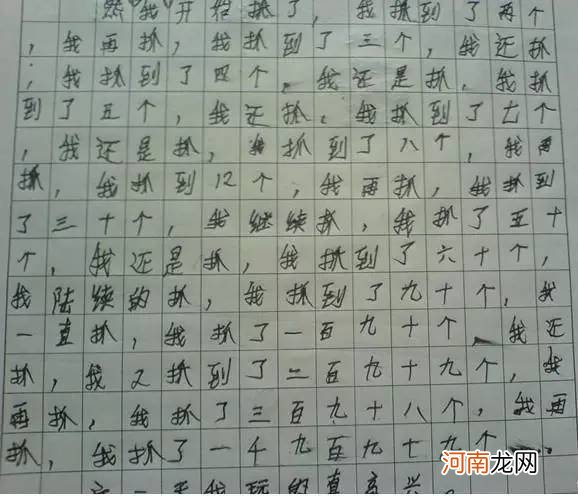 然我开始抓了，我抓到了两个
，我再抓，我抓到了三个，我还抓
，我抓到了四个，我还是抓，我抓
到了五个，我还抓，我抓到了七个
，我还是抓，我抓到了八个，我再
抓，我抓到12个，我再抓，我抓到
了三十个，我继续抓，我抓了五十
个，我还是抓，我抓到了六十个，
我陆续的抓，我抓到了九十个，我
一直抓，我抓了一百九十个，我还
抓，我又抓到了二百九十九个，我
再抓，我抓了三百九十八个，我再
抓，我抓了一千九百九十九个。
这一天我玩的真高兴。
河南龙网